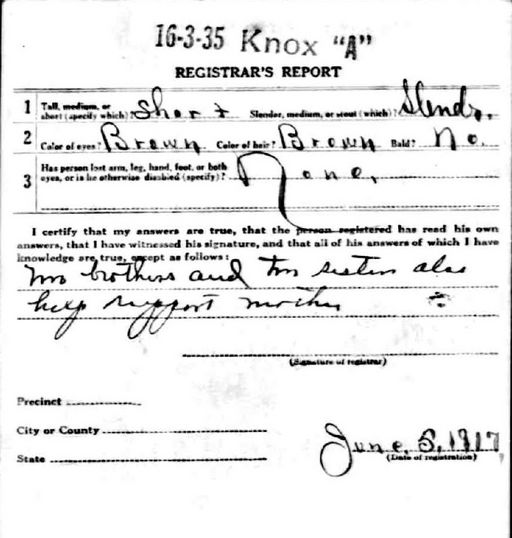 16-3-35 Knox "A"
REGISTRAR'S REPORT
1 Tall, medium, or short (specify which)? Short Slender, medium, or stout (which)? Slender.
2 Color of eyes? Brown Color of hair? Brown Bald? No.
3 Has person lost arm, leg, hand, foot, or both eyes, or is he otherwise disabled (specify)? None.
I certify that my answers are true, that the person registered has read his own
answers, that I have witnessed his signature, and that all of his answers of which I have
knowledge are true, except as follows:
Two brothers and two sisters also
help support mother
(Signature of registrar)
Precinct
City or County
State
June 5, 1917
(Date of registration)